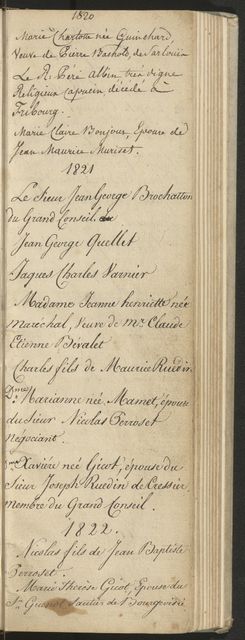 1820
Marie Charlotte née Guinchard,
Veuve de Pierre Bachold, de Sarlouis
Le R. Père Albin très digne
Religieux capucin décédé à
Fribourg.
Marie Claire Bonjour, Epouse de
Jean Maurice Muriset.
1821
Le Sieur Jean George Brochatton
du Grand Conseil.
Jean George Quellet
Jaques Charles Varnier
Madame Jeanne henriette née
Maréchal, Veuve de Mr. Claude
Etienne Bévalet
Charles fils de Maurice Ruedin
Dme. Marianne née Mamet, épouse
du Sieur Nicolas Perroset
Négociant.
Dme. Xaviére née Gicot, épouse du
Sieur Joseph Ruedin de Cressier
membre du Grand Conseil.
1822.
Nicolas fils de Jean Baptiste
Perroset.
Marie Thérèse Gicot, Epouse du
Sr. Sautier de Bourgeoisie